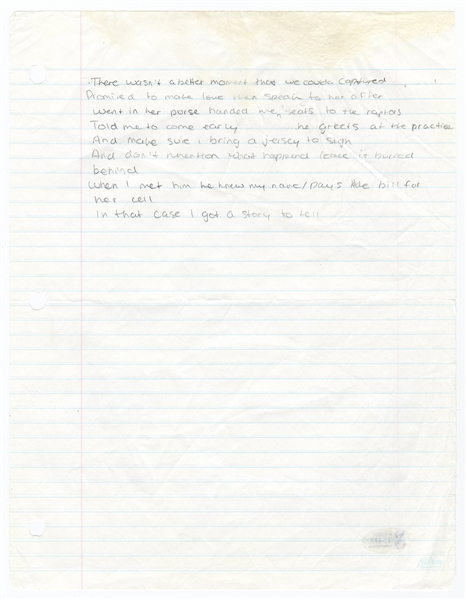 There wasn't a better moment that we coulda captured
Promised to make love then speak to her after
Went in her purse handed me seats to the raptors
Told me to come early he greets at the practice
And make sure i bring a jersey to sign
And don't mention what happened leave it buried
behind
When I met him he knew my name/Pays the bill for
her cell
In that case I got a story to tell